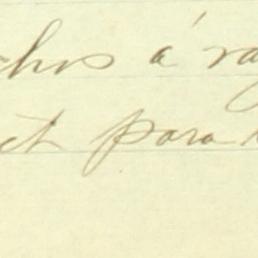 chos á ra
ct para